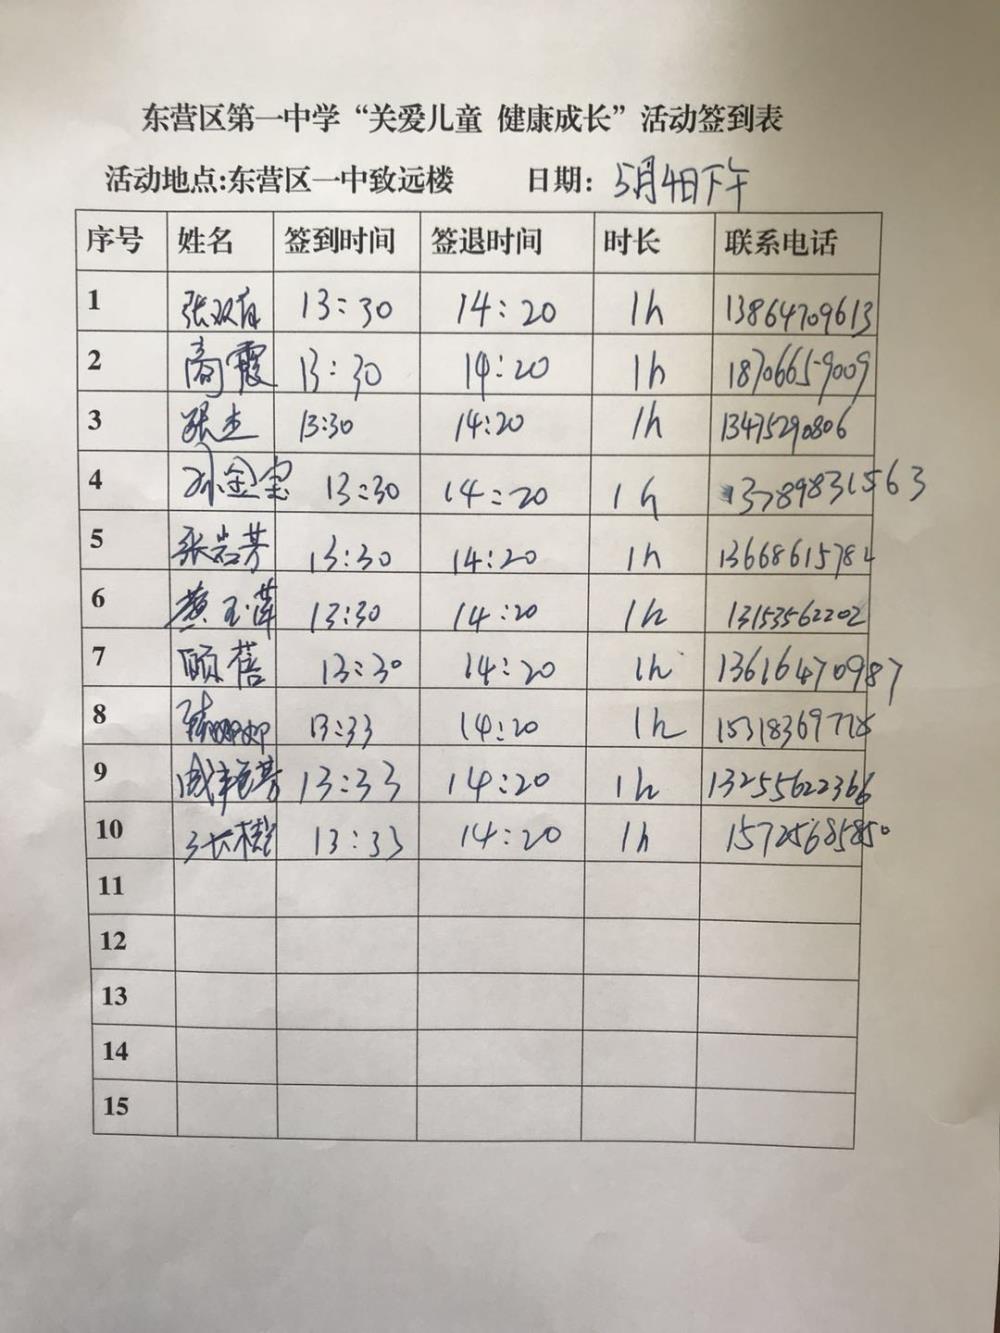 东营区第一中学“关爱儿童 健康成长”活动签到表
活动地点:东营区一中致远楼 日期: 5月4日下午
序号 姓名 签到时间 签退时间 时长 联系电话
1 13:30 14:20 1h 13864709613
2 高霞 13:30 14:20 1h 18706659009
3 张杰 13:30 14:20 1h 13475290806
4 孙金宝 13:30 14:20 1h 13789831563
5 张岩芳 13:30 14:20 1h
6 黄玉萍 13:30 14:20 1h 13153562202
7 顾蓓 13:30 14:20 1h 13616470987
8 13:33 14:20 1h
9 13:33 14:20 1h 13255622366
10 13:33 14:20 1h 15725685850
11
12
13
14
15